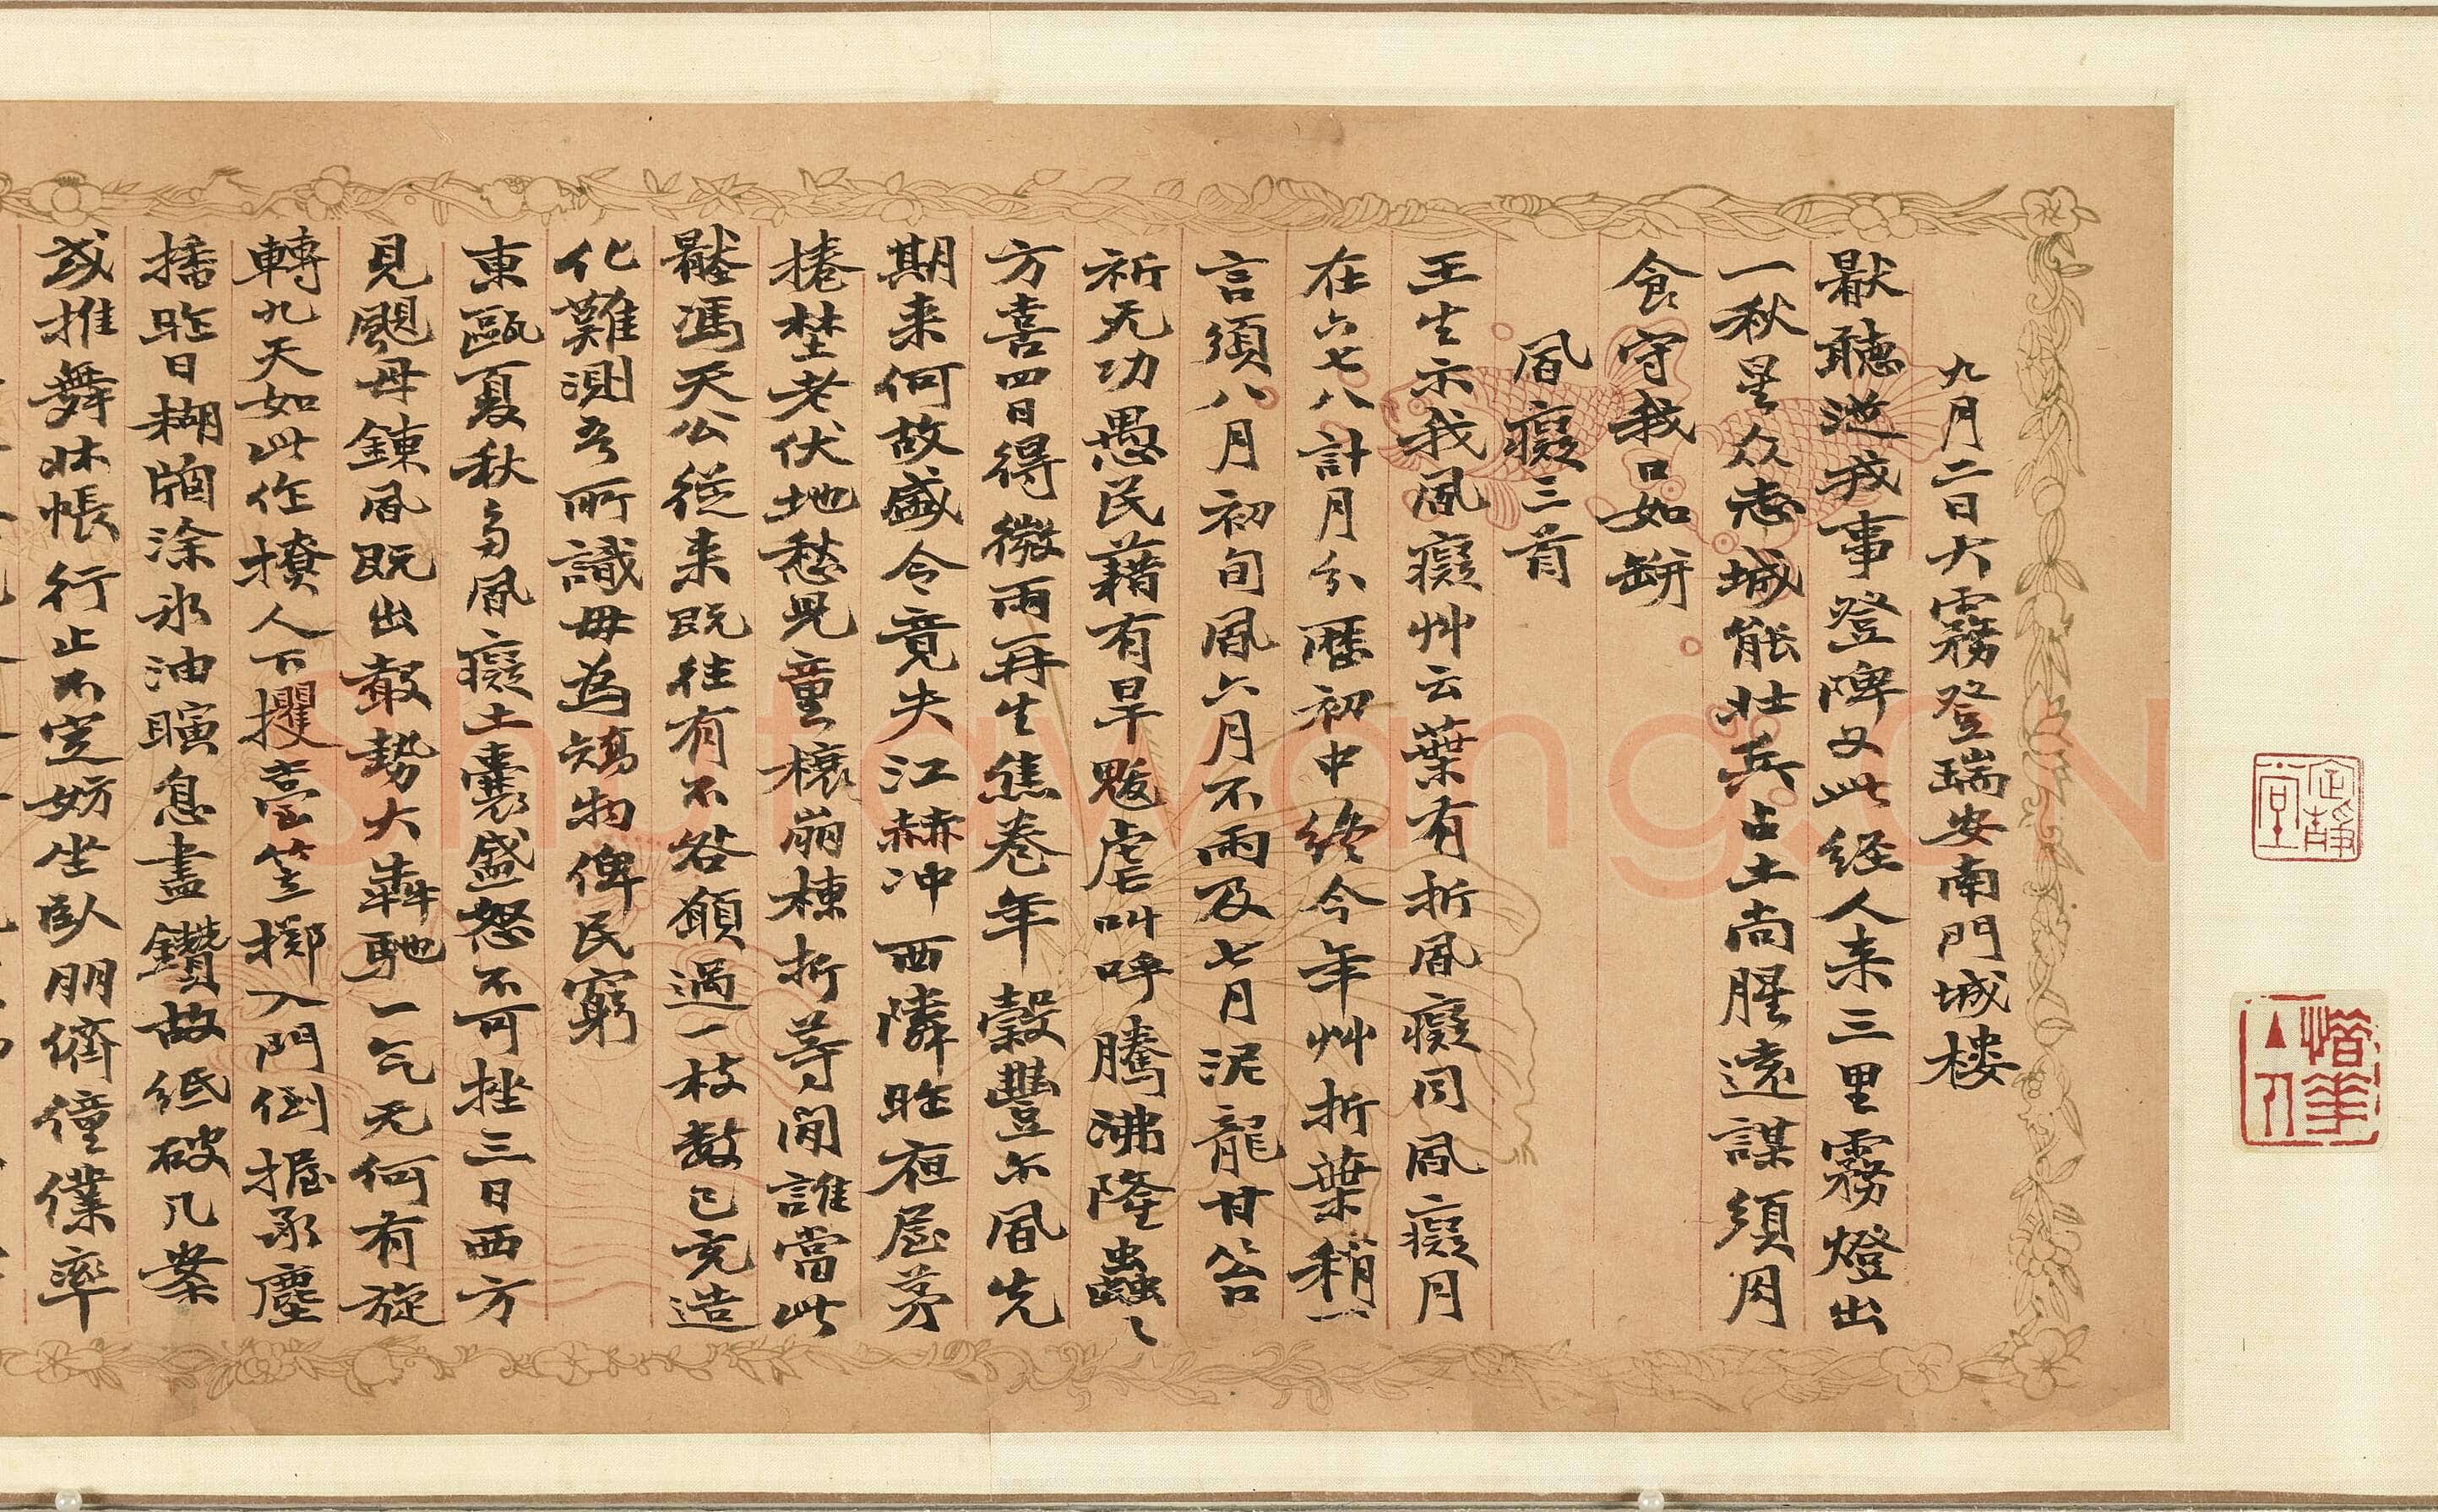 九月二日大霧登瑞安南門城楼
厭聽逆我事登陴又此経人来三里霧燈出
一秋星众志城能壮兵占土尚腥遠謀須月
食守我口如缾
風癡三首
王生示我風癡艸云葉有折風癡同風癡月
在六七八計月分歷初中終今年艸折葉稍一
言須八月初旬風六月不雨及七月泥龍甘笞
祈无功愚民藉有旱魃虐叫呼騰沸隆蟲〻
方喜四日得微雨再生焦卷年穀豐尒風先
期来何故盛令竟失江赫冲西隣昨夜屋茅
捲埜老伏地愁見童榱崩棟折等閒誰當此
整馮天公從来既往有不咎願過一枝数已充造
化難測吾所識毋為鴆物俾民窮
東甌夏秋多風癡土囊盛怒不可挫三日西方
見颶母鍊風既出穀勢大犇馳一气无何有旋
轉九天如此作撩人下攫臺笠擲入門倒握承塵
播昨日糊牖涂氷油瞚息盡鑽故纸破几案
或推舞牀帳行止不寔妨坐臥朋儕僮僕率
定靜堂